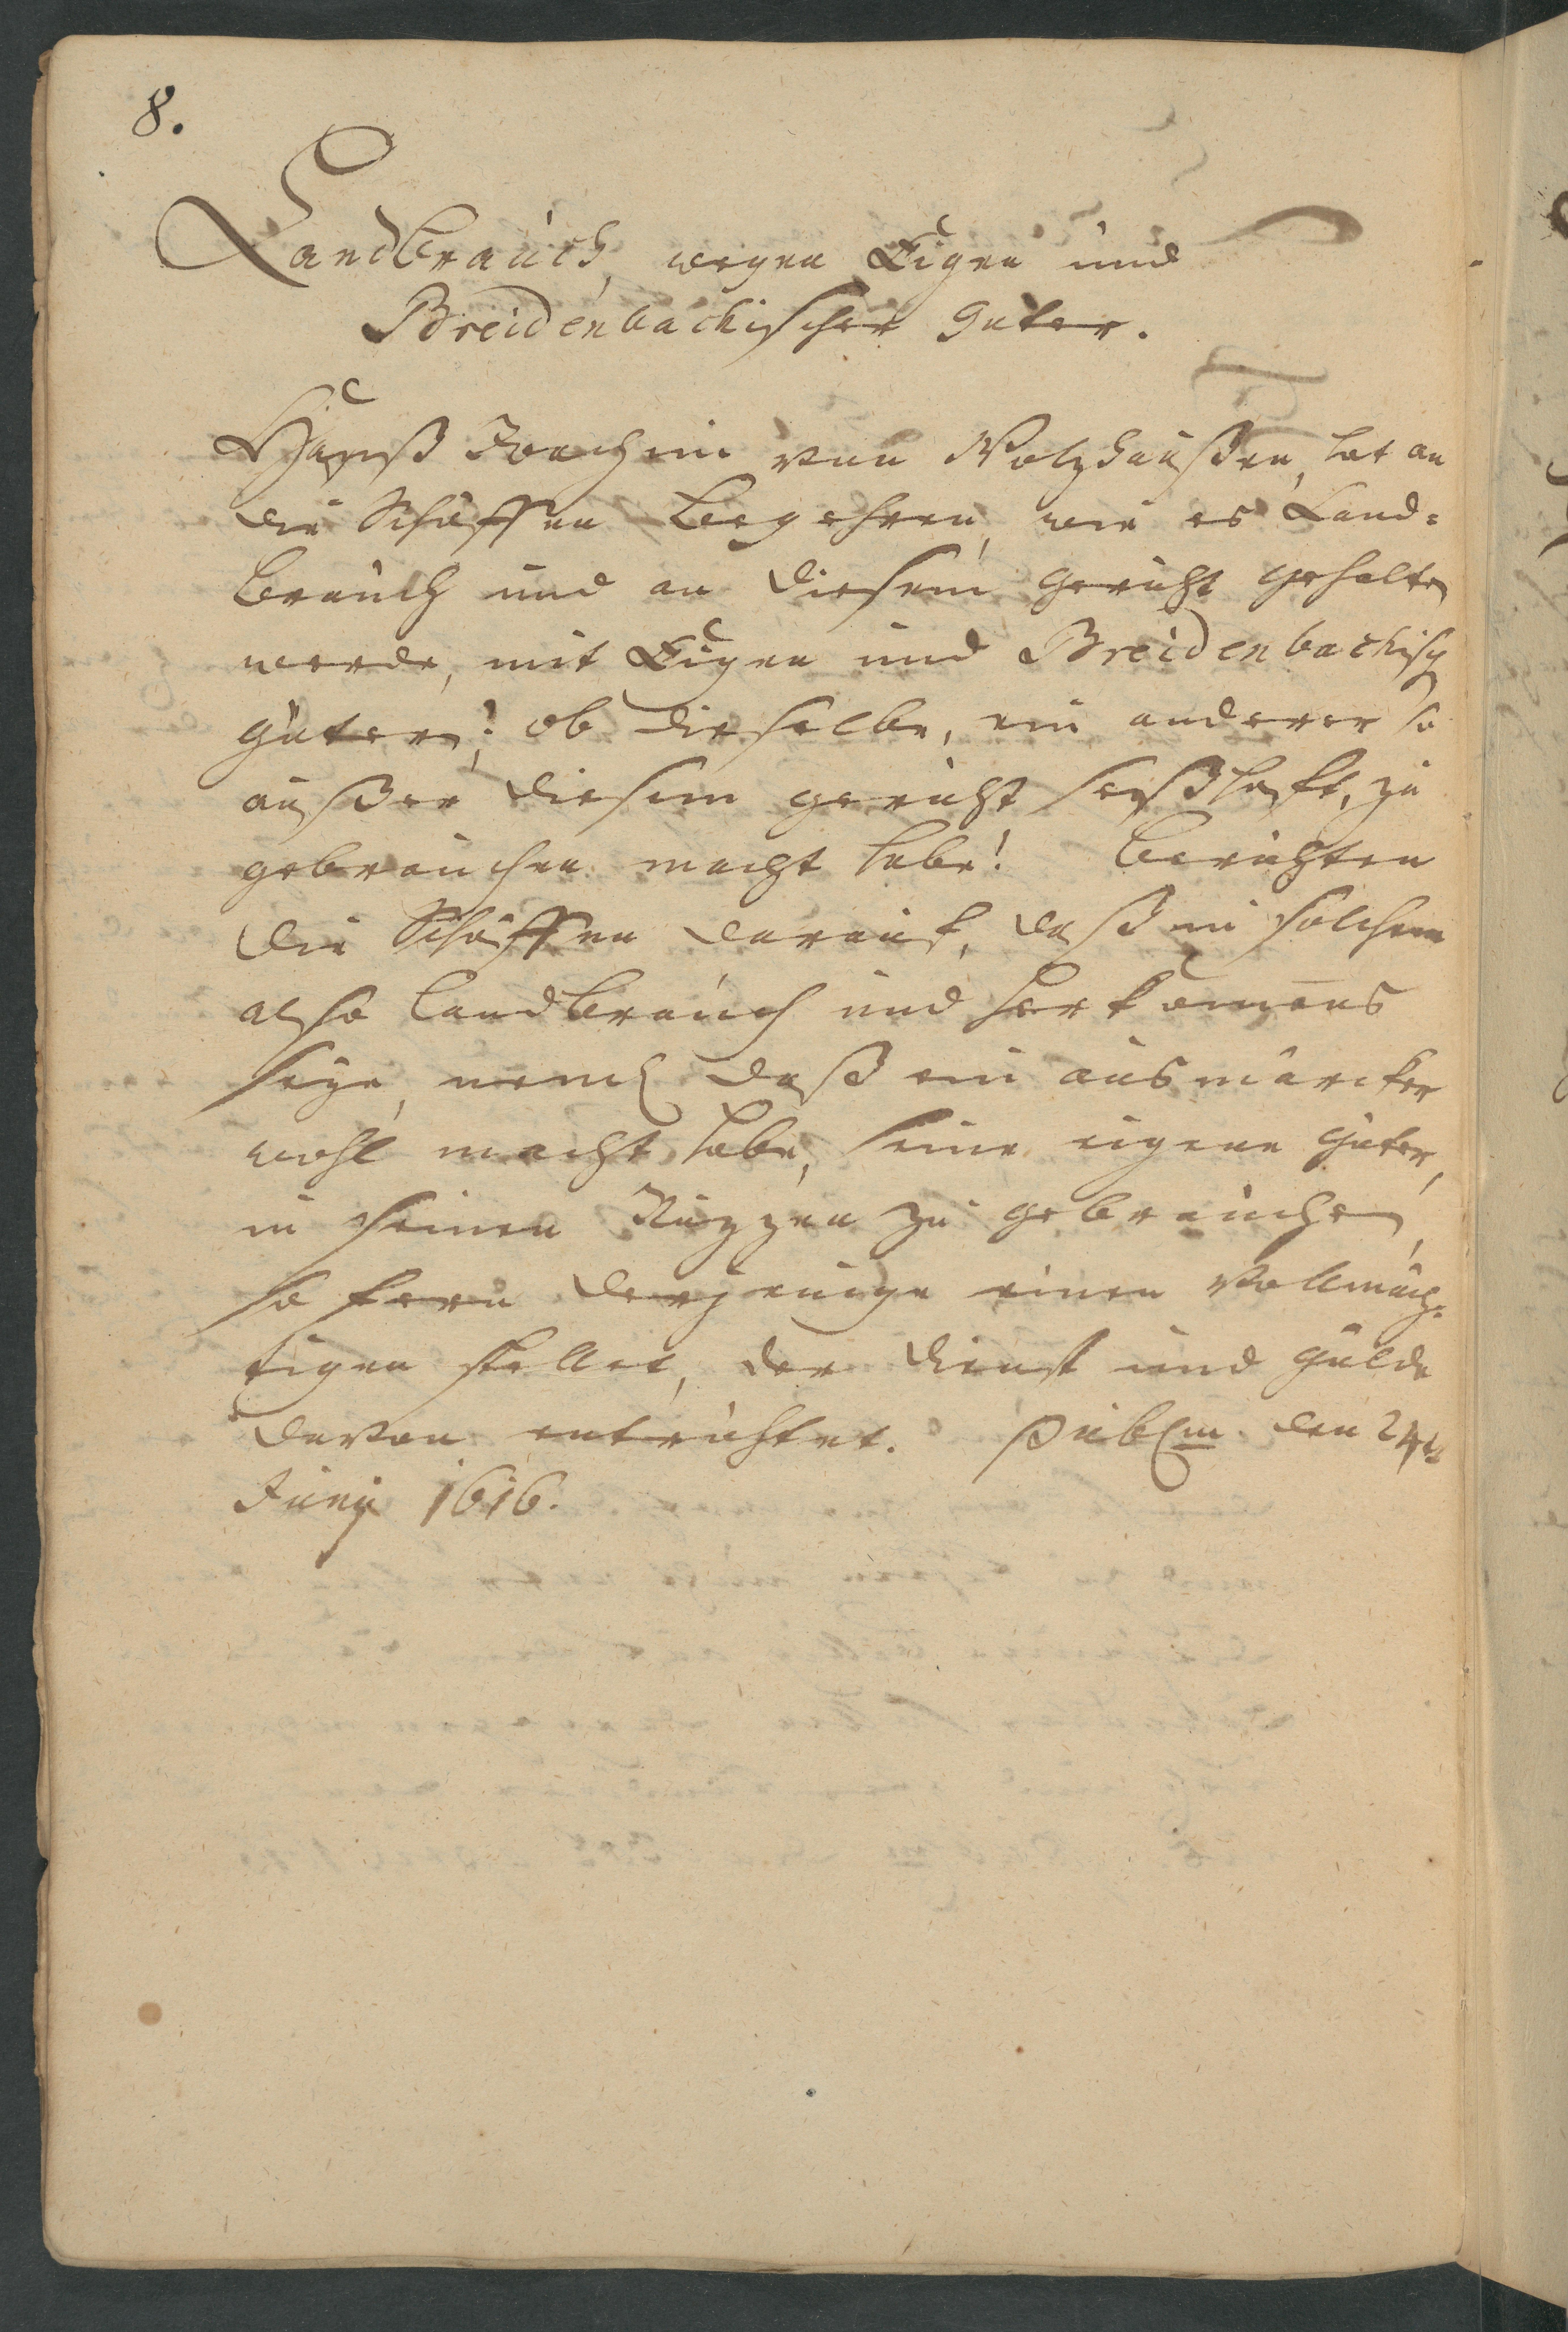 8.
Landbrauch, wegen Eigen und
Breidenbachischer Güter.
Hanß Joachim von Wolzhaußen, hat an
die Schöffen begehren, wie es Land=
brauch und an diesem gericht gehalten
werde, mit Eigen und Breidenbachisch
güter; ob dieselbe, ein anderer so
außer diesem gericht seßhaft, zu
gebrauchen macht habe! berichten
die Schöffen darauf, daß in solchem
also landbrauch und herkomens
seye, neml daß ein ausmärcker
wohl macht habe, seine eigene güter,
in seinen Nuzzen zu gebrauchen,
so fern derjenige einen Vollmäch=
tigen stellet, der dienst und gülde
davon entrichtet. Publm den 24t
Junij 1616.